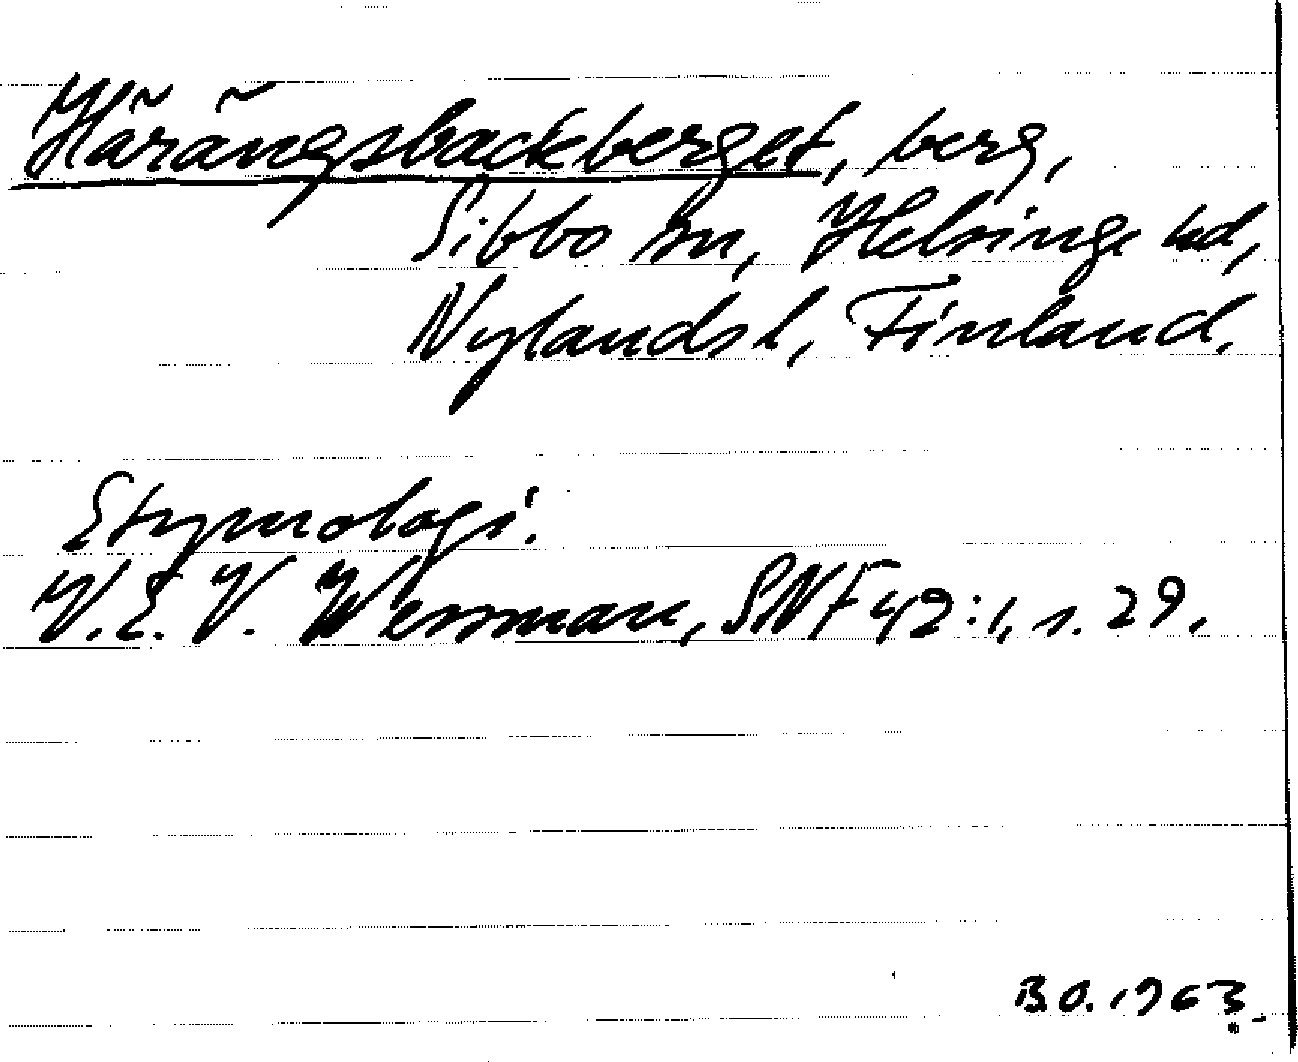 Härängsbackberget, berg,
Sibbo sn, Helsinge hd,
Nylands l, Finland.
Etymologi.
V.E.V. Wessman, SNF 42:1, s. 29.
B.O. 1963.